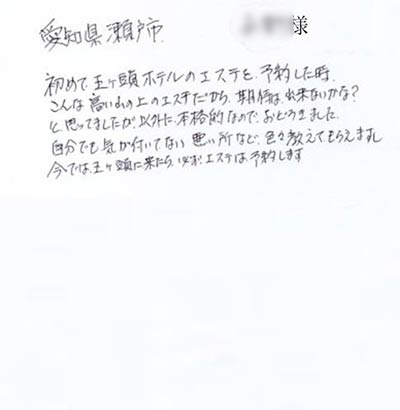 愛知県瀬戸市 様
初めて王ヶ頭ホテルのエステを予約した時、
こんな高い山の上のエステだから、期待は出来ないかな?
と思ってましたが、以外に本格的なので、おどろきました。
自分でも気が付いてない悪い所など、色々教えてもらえますし
今では王ヶ頭に来たら、必ずエステは予約します